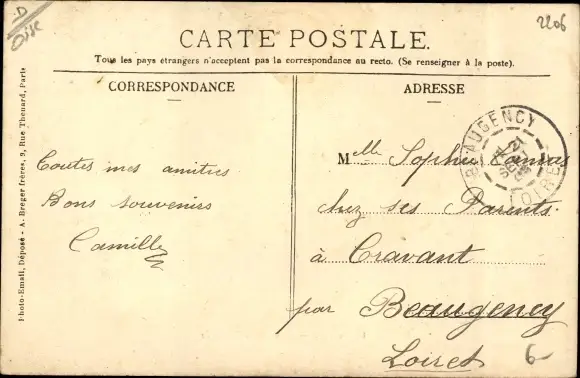 -D
Oise
2206
CARTE POSTALE.
Tous les pays étrangers n'acceptent pas la correspondance au recto. (Se renseigner à la poste).
CORRESPONDANCE
ADRESSE
Photo-Email, Déposé - A. Breger frères, 9, Rue Thenard, Paris
Toutes mes amitiés
Bons souvenirs
Camille
Melle Sophie
chez ses Parents
à Cravant
par Beaugency
Loiret
BEAUGENCY
LOIRET
6-